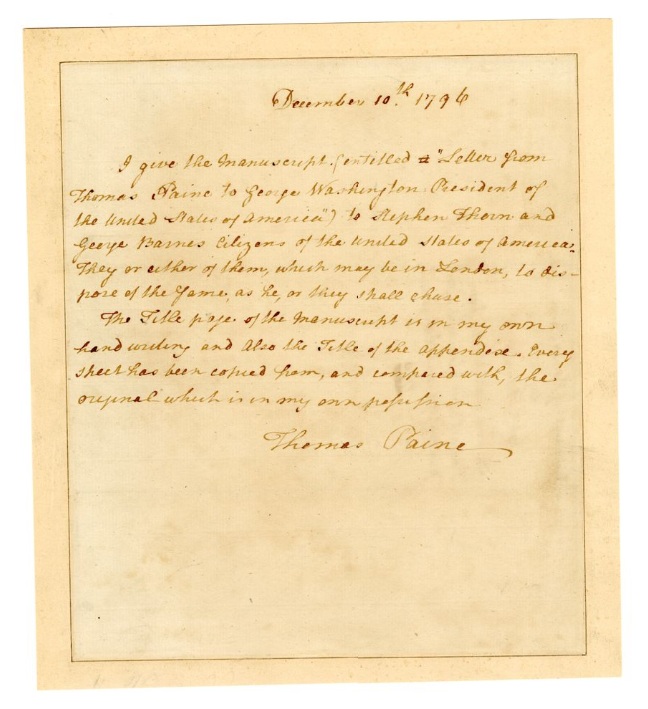 December 10.th 1796
I give the Manuscript (entitled "Letter from
Thomas Paine to George Washington President of
the United States of America") to Stephen Thorn and
George Barnes Citizens of the United States of America.
They or either of them, which may be in London, to dis-
pose of the Same, as he, or they shall chuse.
The Title page of the Manuscript is in my own
hand writing and Also the Title of the appendix. Every
sheet has been copied from, and compared with, the
original which is in my own possession
Thomas Paine